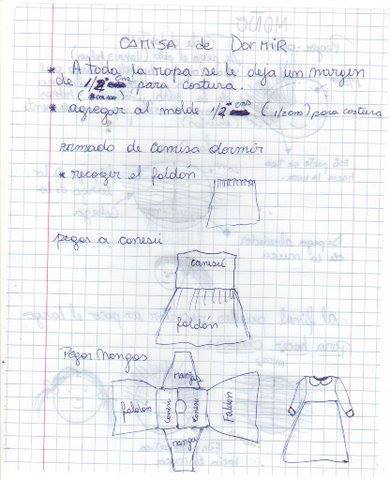 CAMISA de DORMIR
* A toda la ropa se le deja un margen
de 1/2 cms para costura.
* agregar al molde 1/2 cms (1/2cm) para costura
armado de camisa dormir
* recoger el faldón
pegar a canesú
canesú
faldón
Pegar Mangas
manga
faldón
canesú
canesú
Faldón
manga